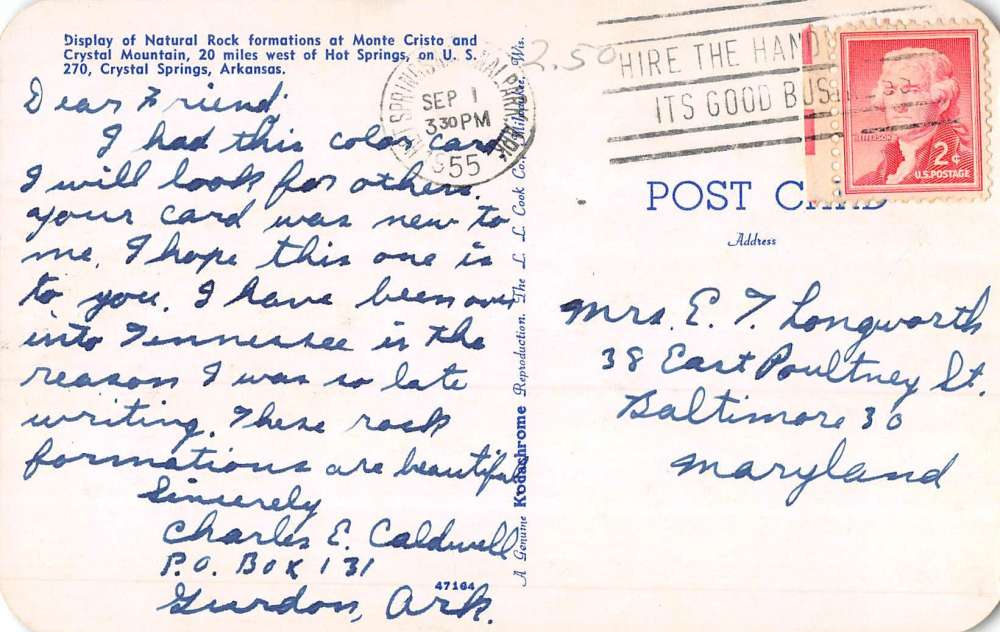 Display of Natural Rock formations at Monte Cristo and
Crystal Mountain, 20 miles west of Hot Springs, on U. S.
270, Crystal Springs, Arkansas.
Dear Friend:
I had this color card
I will look for others.
your card was new to
me. I hope this one is
to you. I have been over
into Tennessee is the
reason I was so late
writing. These rock
formations are beautiful
Sincerely
Charles E. Caldwell
P.O. Box 131
Gurdon, Ark.
47164
A Genuine Kodachrome Reproduction. The L. L. Cook Co., Milwaukee, Wis.
SEP 1
3 30 PM
1955
2.50
HIRE THE HANDI
ITS GOOD BUSINESS
JEFFERSON
2¢
U.S. POSTAGE
POST CARD
Address
Mrs. E. T. Longworth
38 East Poultney St.
Baltimore 30
Maryland